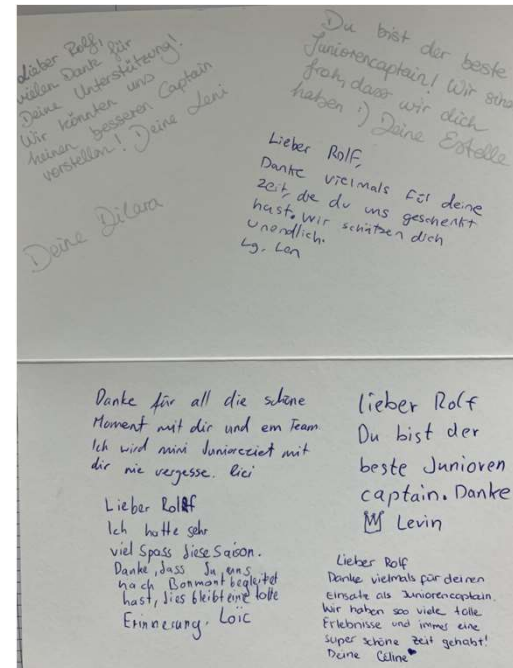 Lieber Rolf,
vielen Dank für
Deine Unterstützung!
Wir könnten uns
keinen besseren Captain
vorstellen! Deine Leni
Deine Dilara
Du bist der beste
Juniorencaptain! Wir sind
froh, dass wir dich
haben :) Deine Estelle
Lieber Rolf,
Danke vielmals für deine
zeit, die du uns geschenkt
hast. Wir schätzen dich
unendlich.
Lg. Len
Danke für all die schöne
Moment mit dir und em Team.
Ich wird mini Junioreziet mit
dir nie vergesse. Rici
Lieber Rolf
Ich hatte sehr
viel Spass diese Saison.
Danke, dass du uns
nach Bonmont begleitet
hast, dies bleibt eine tolle
Erinnerung. Loïc
lieber Rolf
Du bist der
beste Junioren
captain. Danke
Levin
Lieber Rolf
Danke vielmals für deinen
Einsatz als Juniorencaptain.
Wir haben soo viele tolle
Erlebnisse und immer eine
super schöne Zeit gehabt!
Deine Céline♥